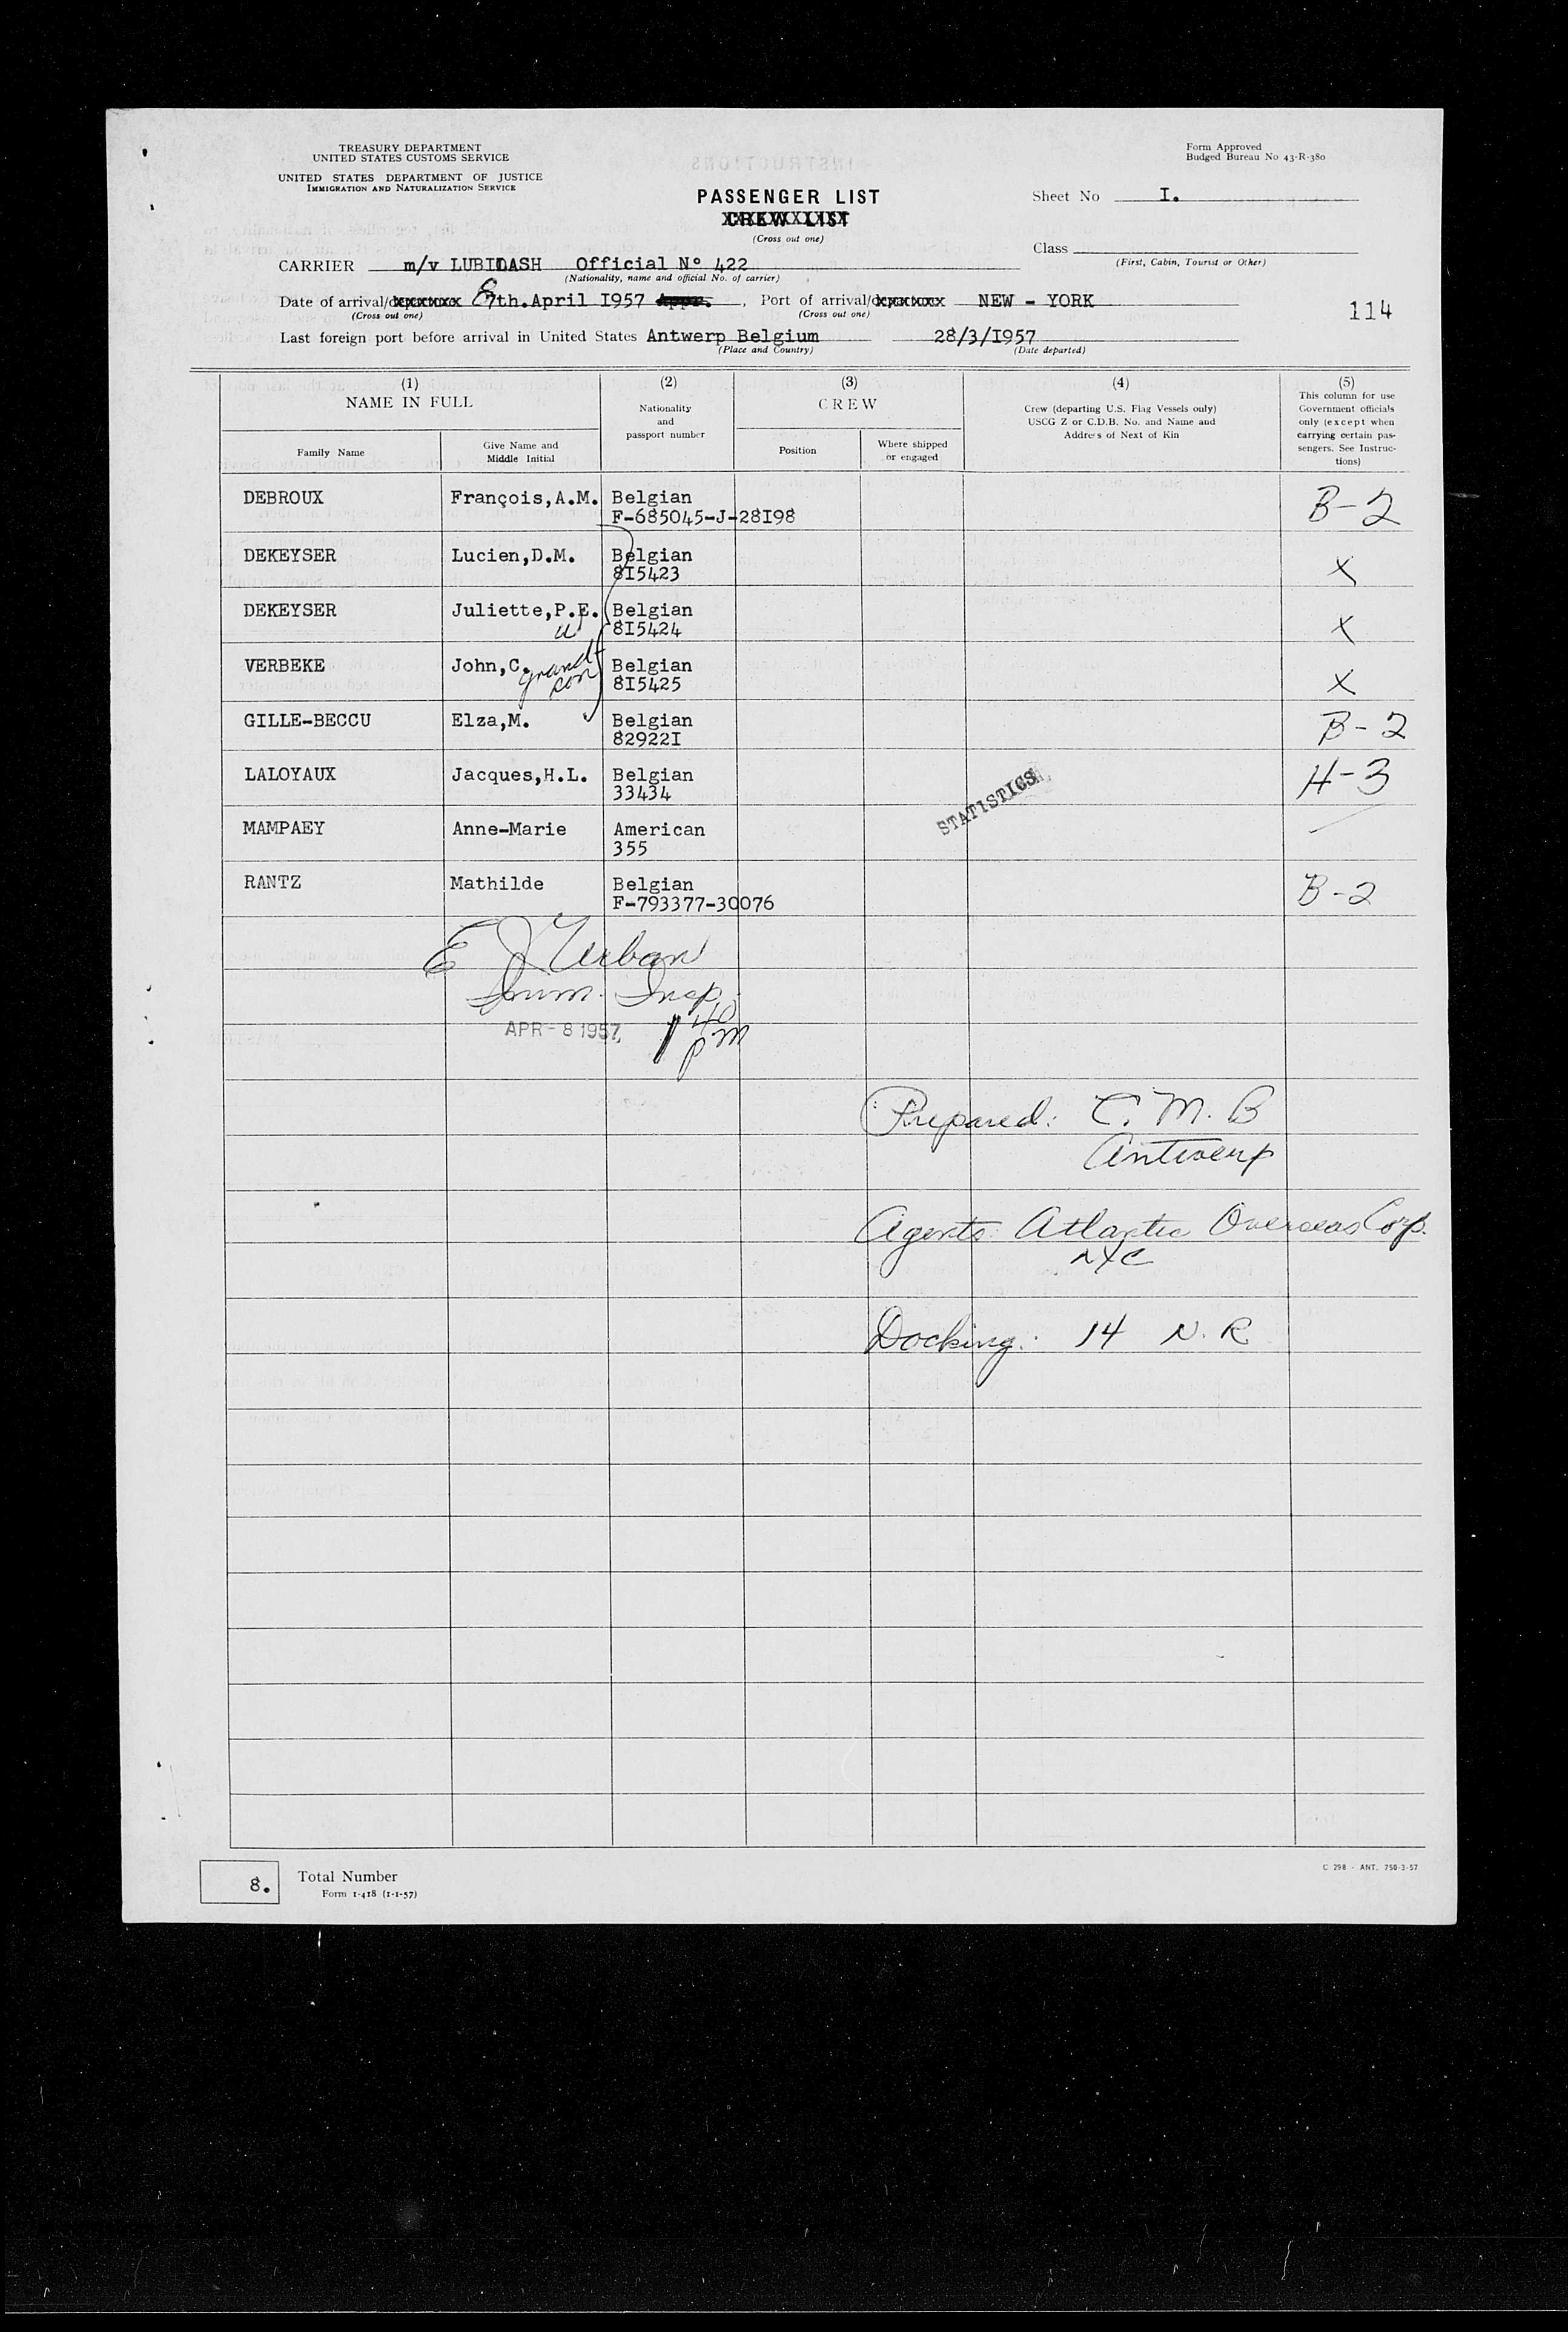 TREASURY DEPARTMENT
UNITED STATES CUSTOMS SERVICE
UNITED STATES DEPARTMENT OF JUSTICE
IMMIGRATION AND NATURALIZATION SERVICE
Form Approved
Budged Bureau No 43-R-380
PASSENGER LIST
CREW LIST
(Cross out one)
Sheet No I.
Class
(First, Cabin, Tourist or Other)
CARRIER m/v LUBILASH Official N° 422
(Nationality, name and official No. of carrier)
Date of arrival/ 8th.April I957 , Port of arrival/ NEW - YORK
(Cross out one) (Cross out one)
114
Last foreign port before arrival in United States Antwerp Belgium 28/3/I957
(Place and Country) (Date departed)
(1) (2) (3) (4) (5)
NAME IN FULL
Family Name
Give Name and
Middle Initial
Nationality
and
passport number
CREW
Position
Where shipped
or engaged
Crew (departing U.S. Flag Vessels only)
USCG Z or C.D.B. No. and Name and
Address of Next of Kin
This column for use
Government officials
only (except when
carrying certain pas-
sengers. See Instruc-
tions)
DEBROUX François,A.M. Belgian B-2
F-685045-J-28I98
DEKEYSER Lucien,D.M. Belgian X
8I5423
DEKEYSER Juliette,P.E. Belgian X
8I5424
VERBEKE John,C. grand Belgian X
son 8I5425
GILLE-BECCU Elza,M. Belgian B-2
82922I
LALOYAUX Jacques,H.L. Belgian H-3
33434
STATISTICS
MAMPAEY Anne-Marie American
355
RANTZ Mathilde Belgian B-2
F-793377-30076
E J Urban
Imm. Insp.
APR - 8 1957 1 40
pm
Prepared: C. M. B
Antwerp
Agents: Atlantic Overseas Corp.
NYC
Docking: 14 N. R
8. Total Number
Form I-418 (1-1-57)
C 298 - ANT. 750-3-57